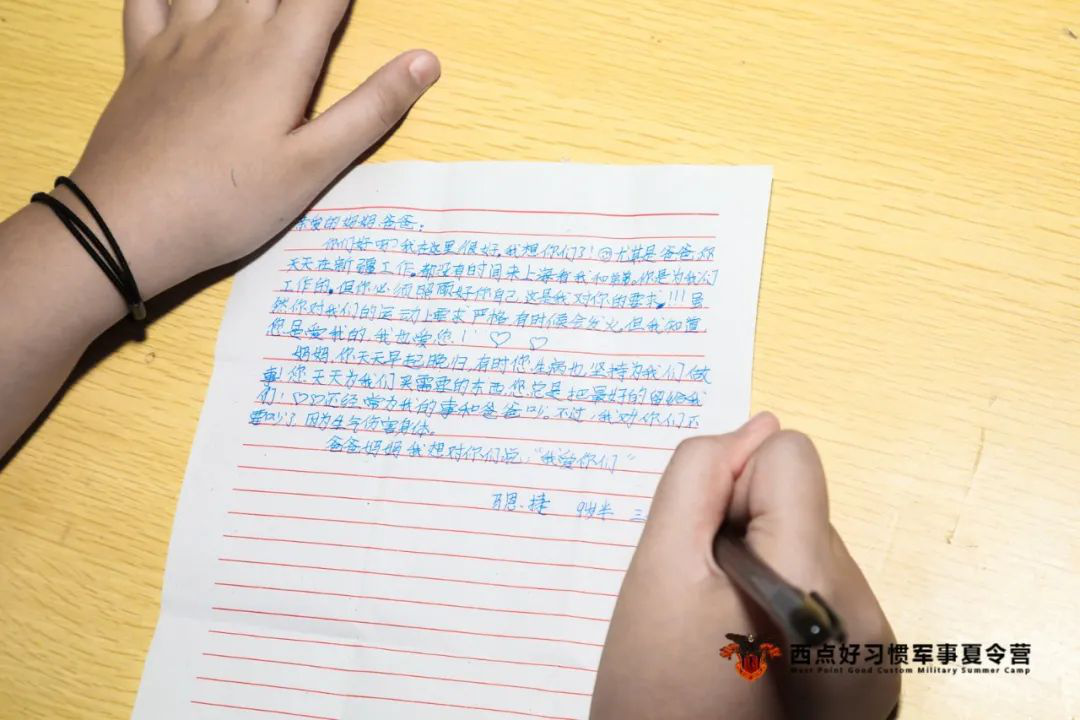 亲爱的妈妈.爸爸:
你们好吗?我在这里很好,我想你们了!尤其是爸爸,您
天天在新疆工作.都没有时间来上海看我和。你是为我们
工作的,但你必须照顾好你自己,这是我对你的要求.!!!虽
然你对我们的运动上要求严格,有时候会发火,但我知道
您是爱我的,我也爱您!! ♡ ♡
妈妈,你天天早起晚归,有时您生病也坚持为我们做
事!你天天为我们买需要的东西,您总是把最好的留给我
们!♡♡还经常为我的事和爸爸吵。不过,我对你们不
要吵了,因为生气伤害身体。
爸爸妈妈我想对你们说:“我爱你们”
捷 9岁半 三
西点好习惯军事夏令营
West Point Good Custom Military Summer Camp